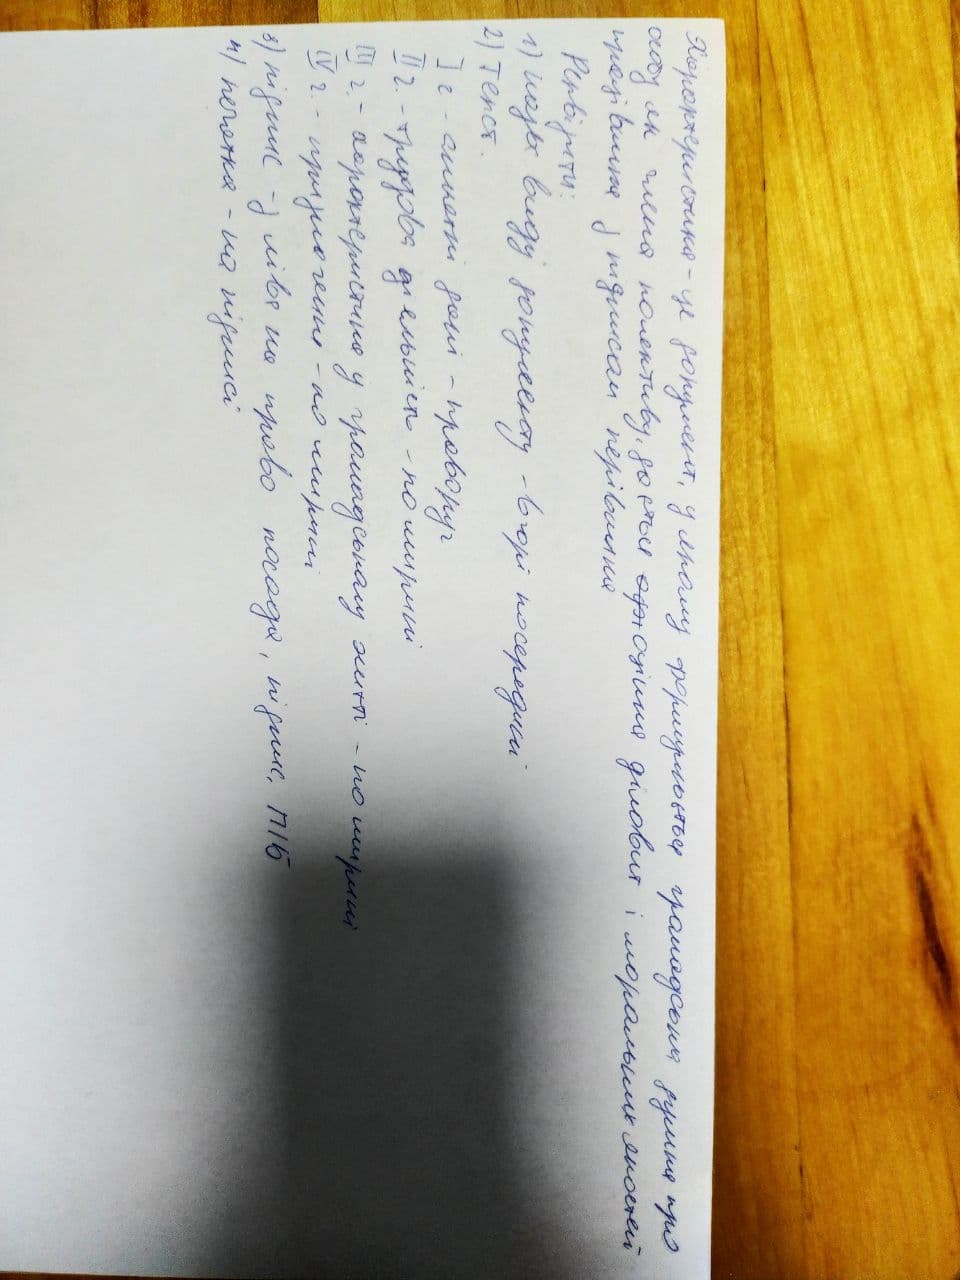 Характеристика - це документ, у якому формулюється громадська думка про
особу як члена колективу, дається оцінка ділових і моральних якостей
працівника з підписом керівника
Реквізити:
1) назва виду документу - вгорі посередині
2) Текст.
I ч. - анкетні дані - праворуч
II ч. - трудова діяльність - по ширині
III ч. - характеристика у громадському житті - по ширині
IV ч. - призначення - по ширині
3) підпис - з ліва на право посада, підпис, ПІБ
4) печатка - на підписі